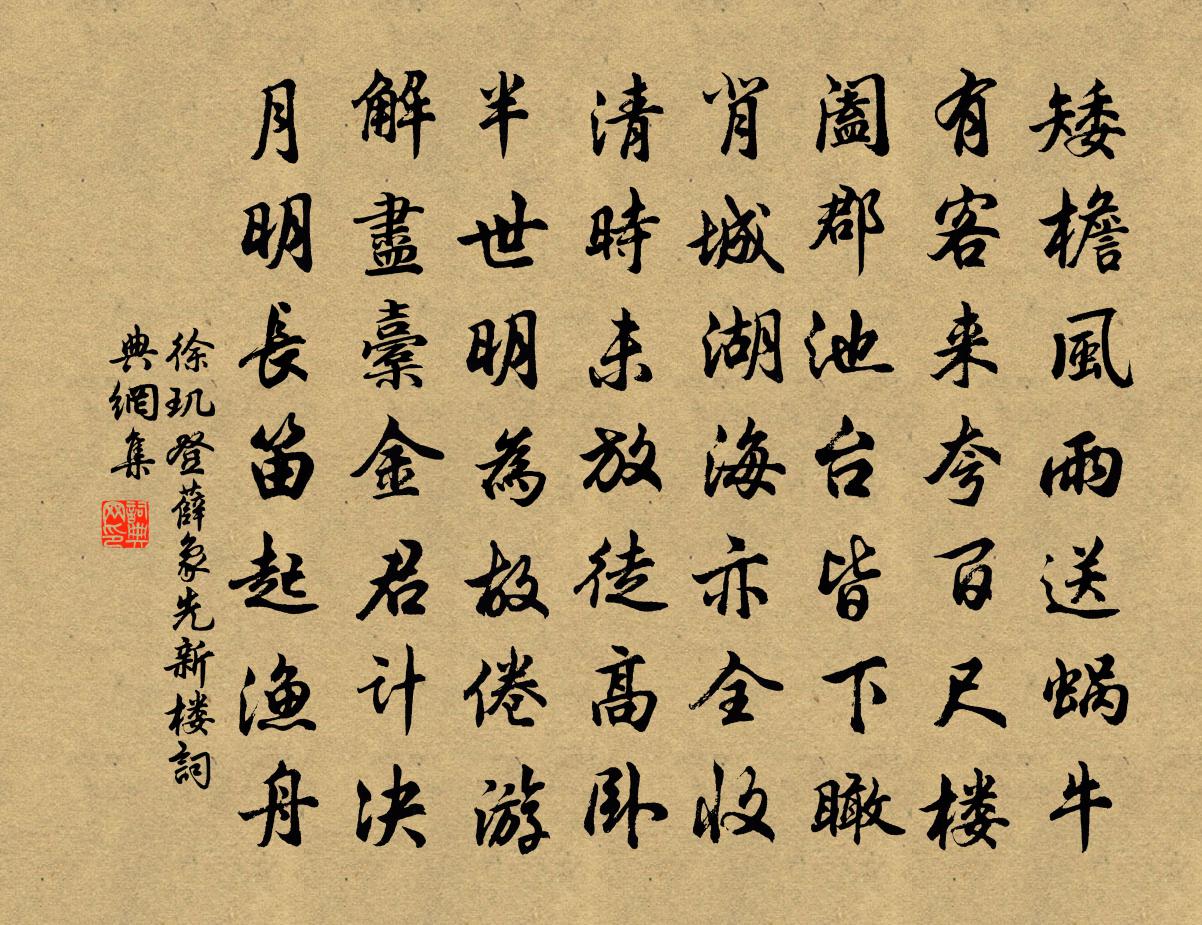 矮檐風雨送蝸牛
有客来夸百尺楼
阖郡池台皆下瞰
背城湖海亦全收
清時未放徒高卧
半世明為故倦游
解盡橐金君计决
月明長笛起渔舟
徐玑登薛象先新楼詞
典網集
詞典网印